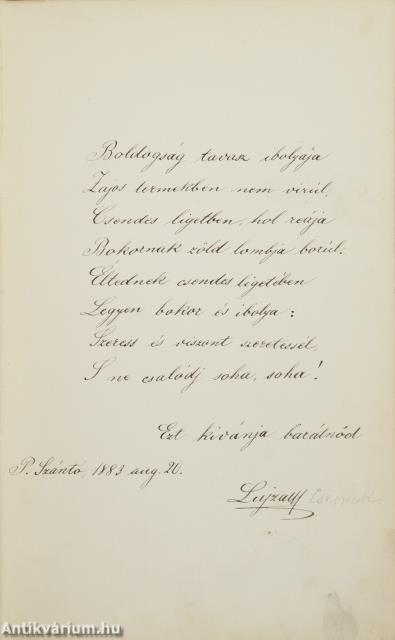 Boldogság tavasz ibolyája
Zajos termekben nem virúl,
Csendes ligetben, hol reája
Bokornak zöld lombja borúl.
Éltednek csendes ligetében
Legyen bokor és ibolya:
Szeress és viszont szeretessél,
S ne csalódj soha, soha!
Ezt kivánja barátnőd
P. Szántó, 1883 aug. 20.
Lujza
Antikvárium.hu